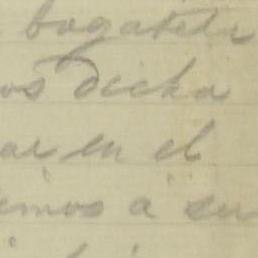 bagatela
os dicha
ar en el
emos a su